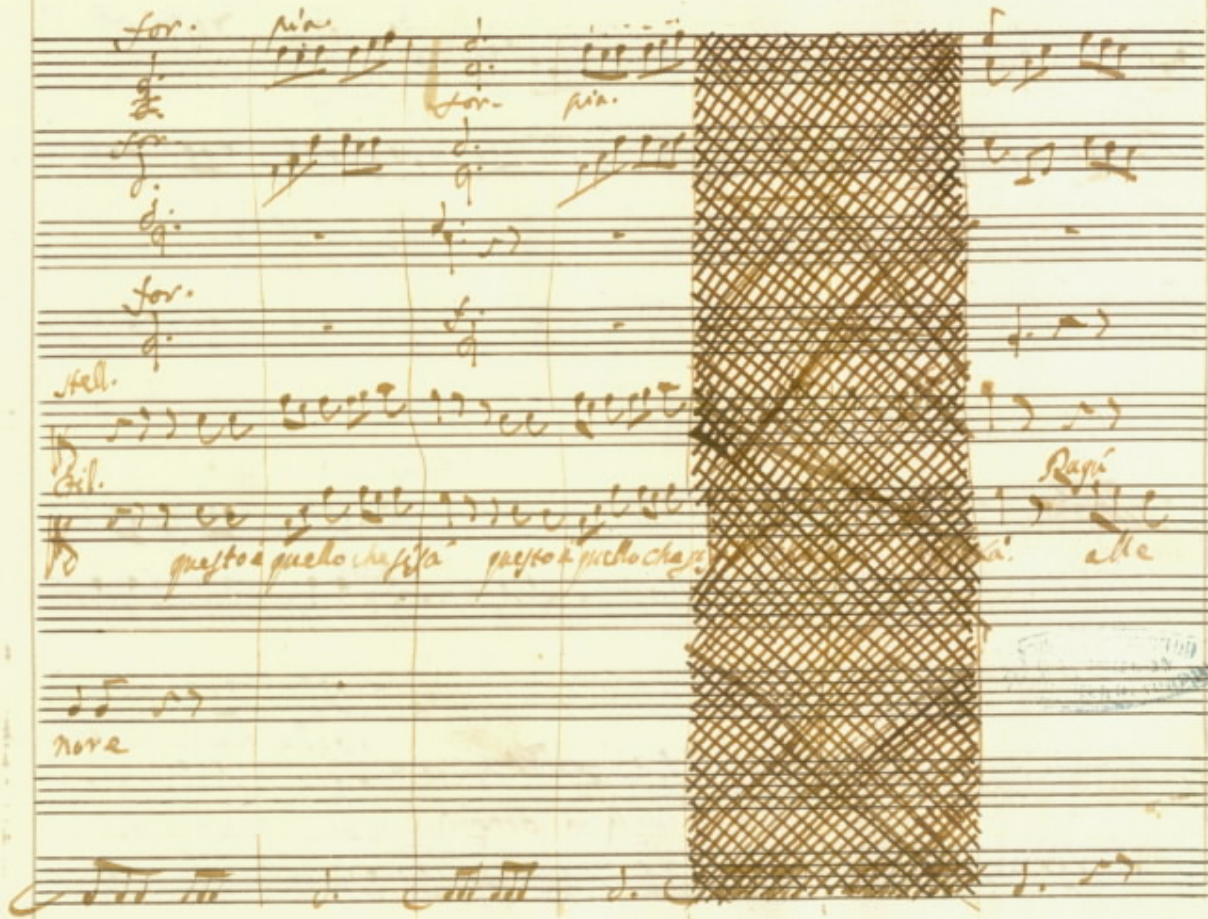 for. pia.
for. pia.
for.
for.
stell.
Gil.
questo è quello che si fà questo è quello che si
alle
nore